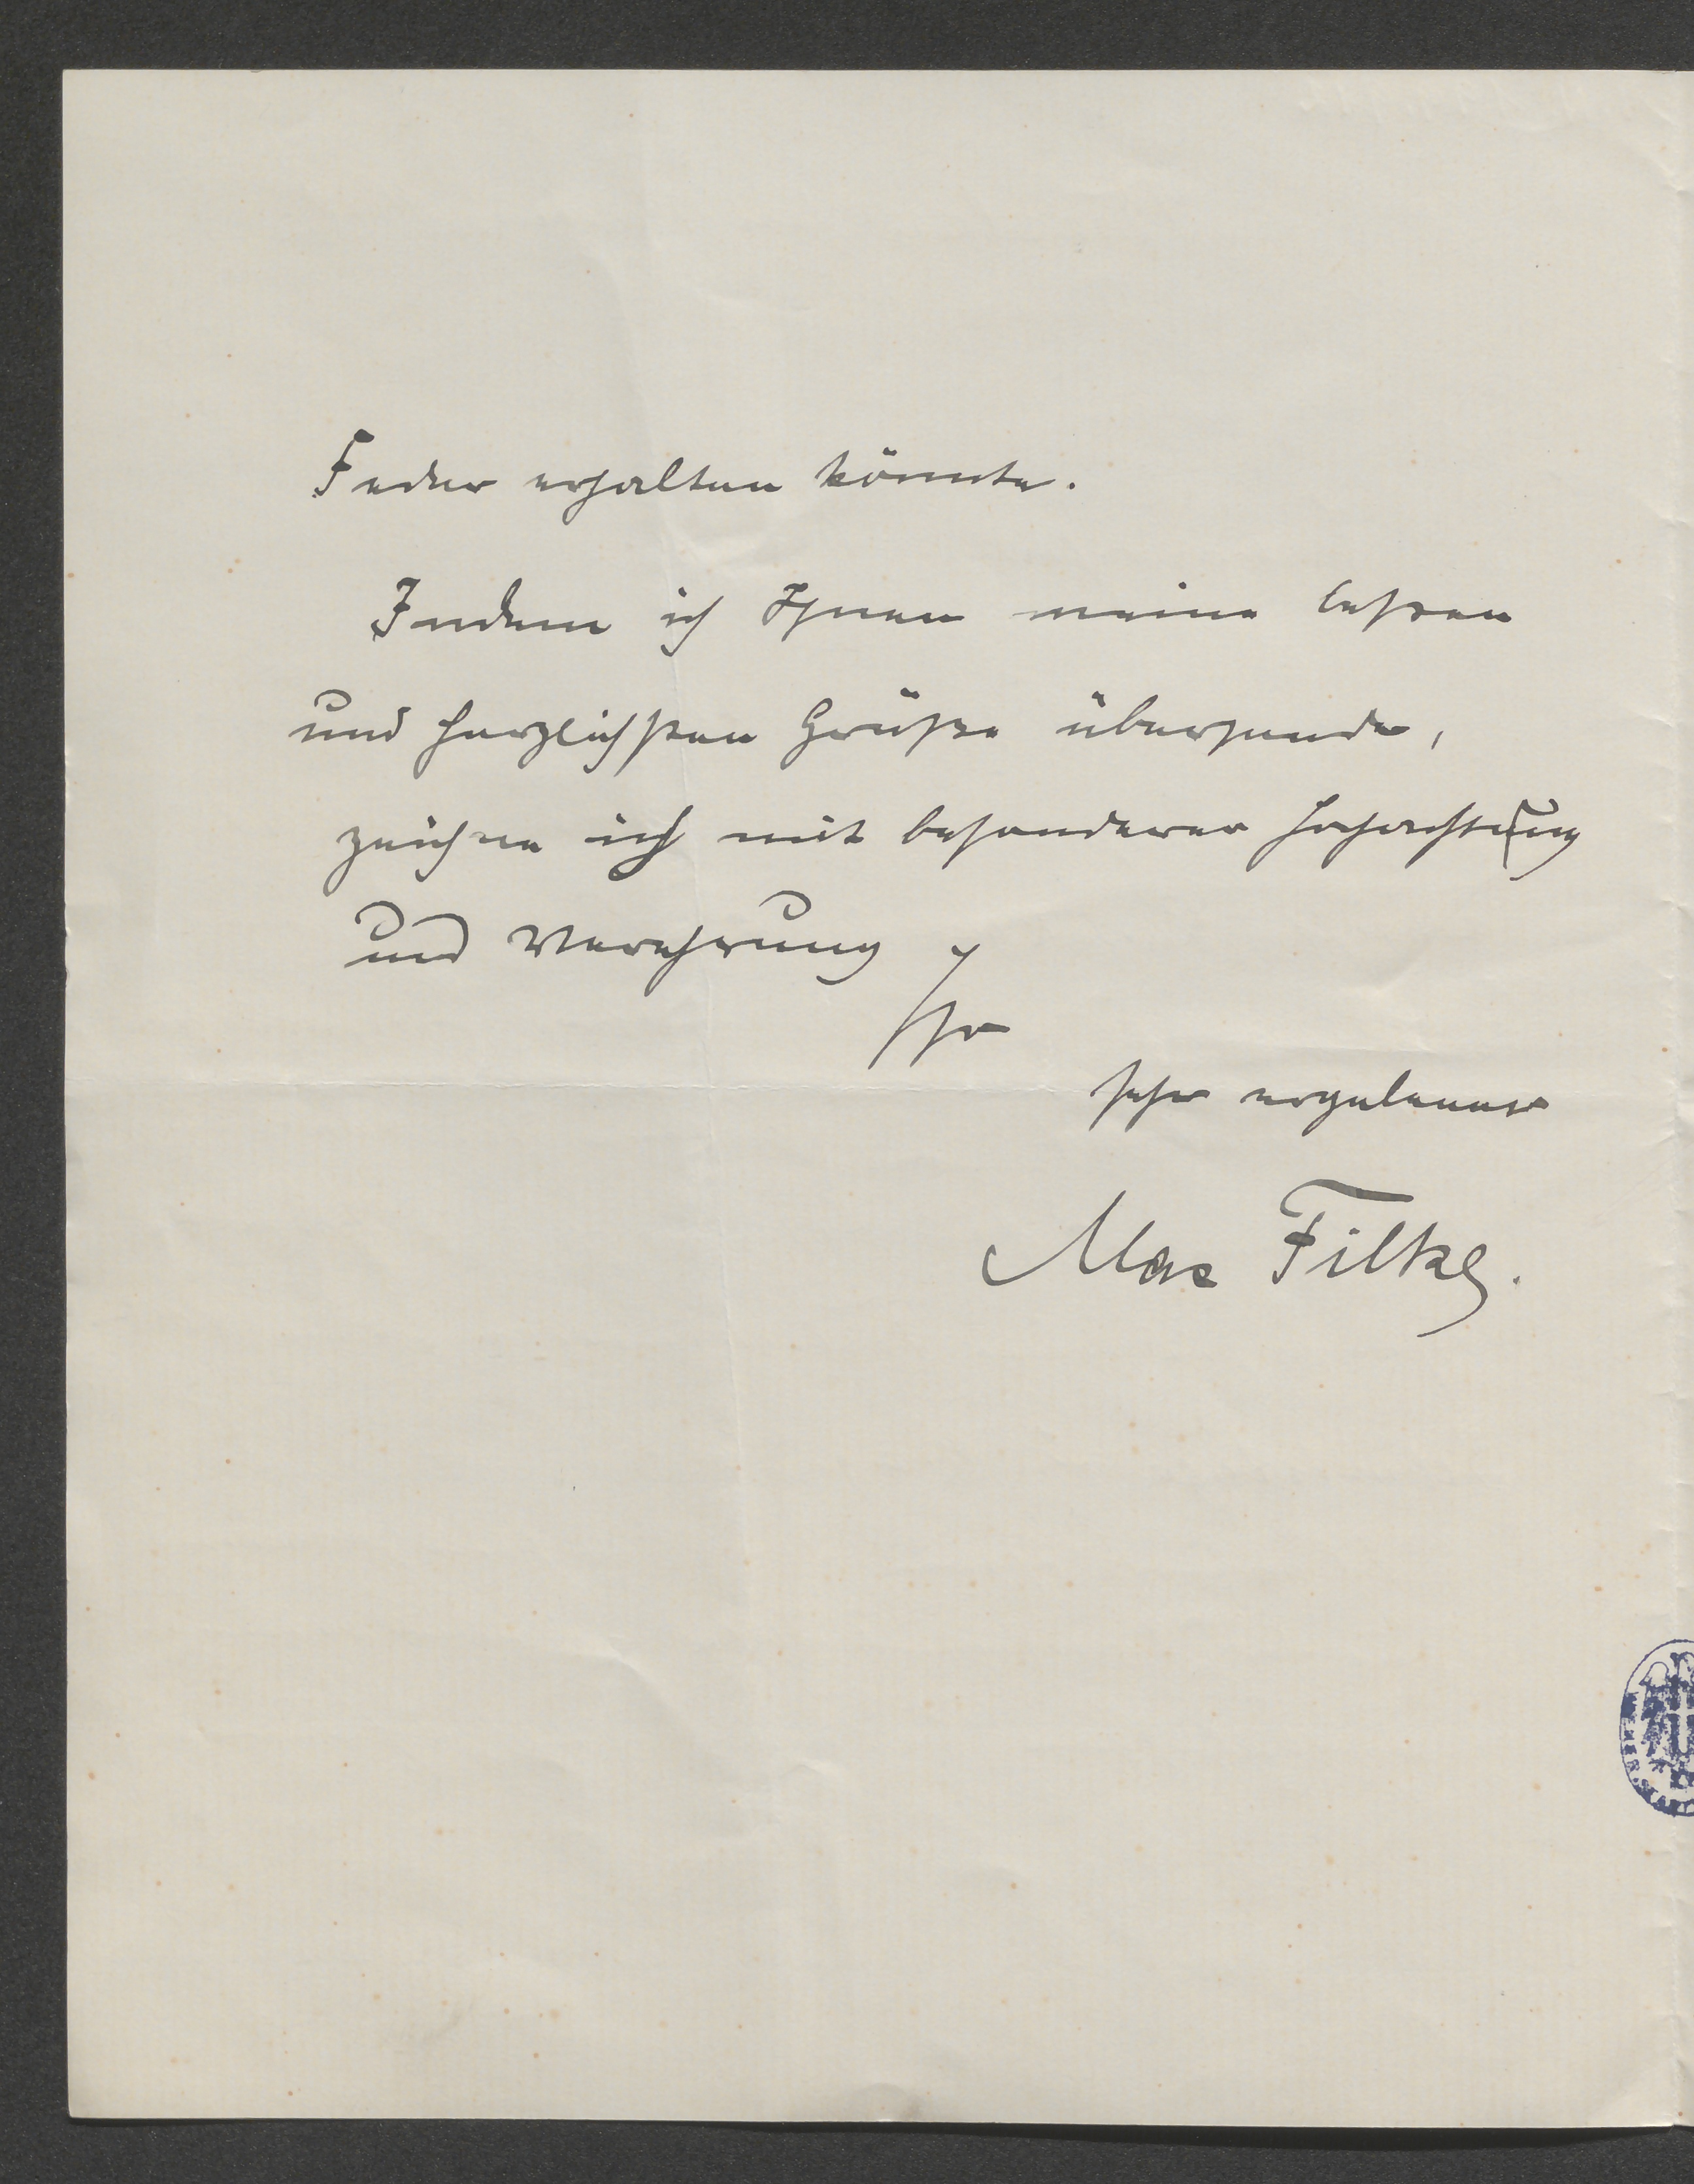 Feder erhalten könnte.
Indem ich Ihnen meine besten
und herzlichsten Grüße übersende,
zeichne ich mit besonderer Hochachtung
und Verehrung
Ihr
sehr ergebener
Max Filke.